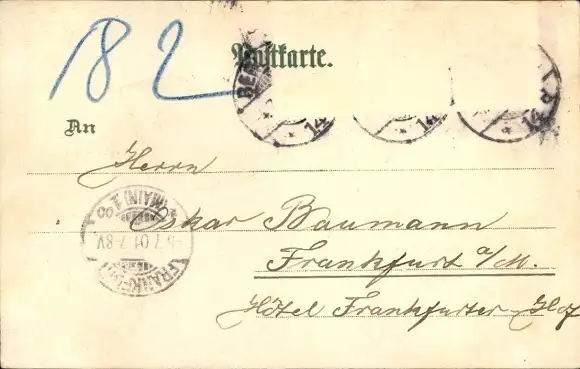 182
Postkarte.
BER
14
14
14
An
Herrn
Oskar Baumann
Frankfurt a/M.
Hôtel Frankfurter-Hof
FRANKFURT
(MAIN) 1
7.01.7-8V.